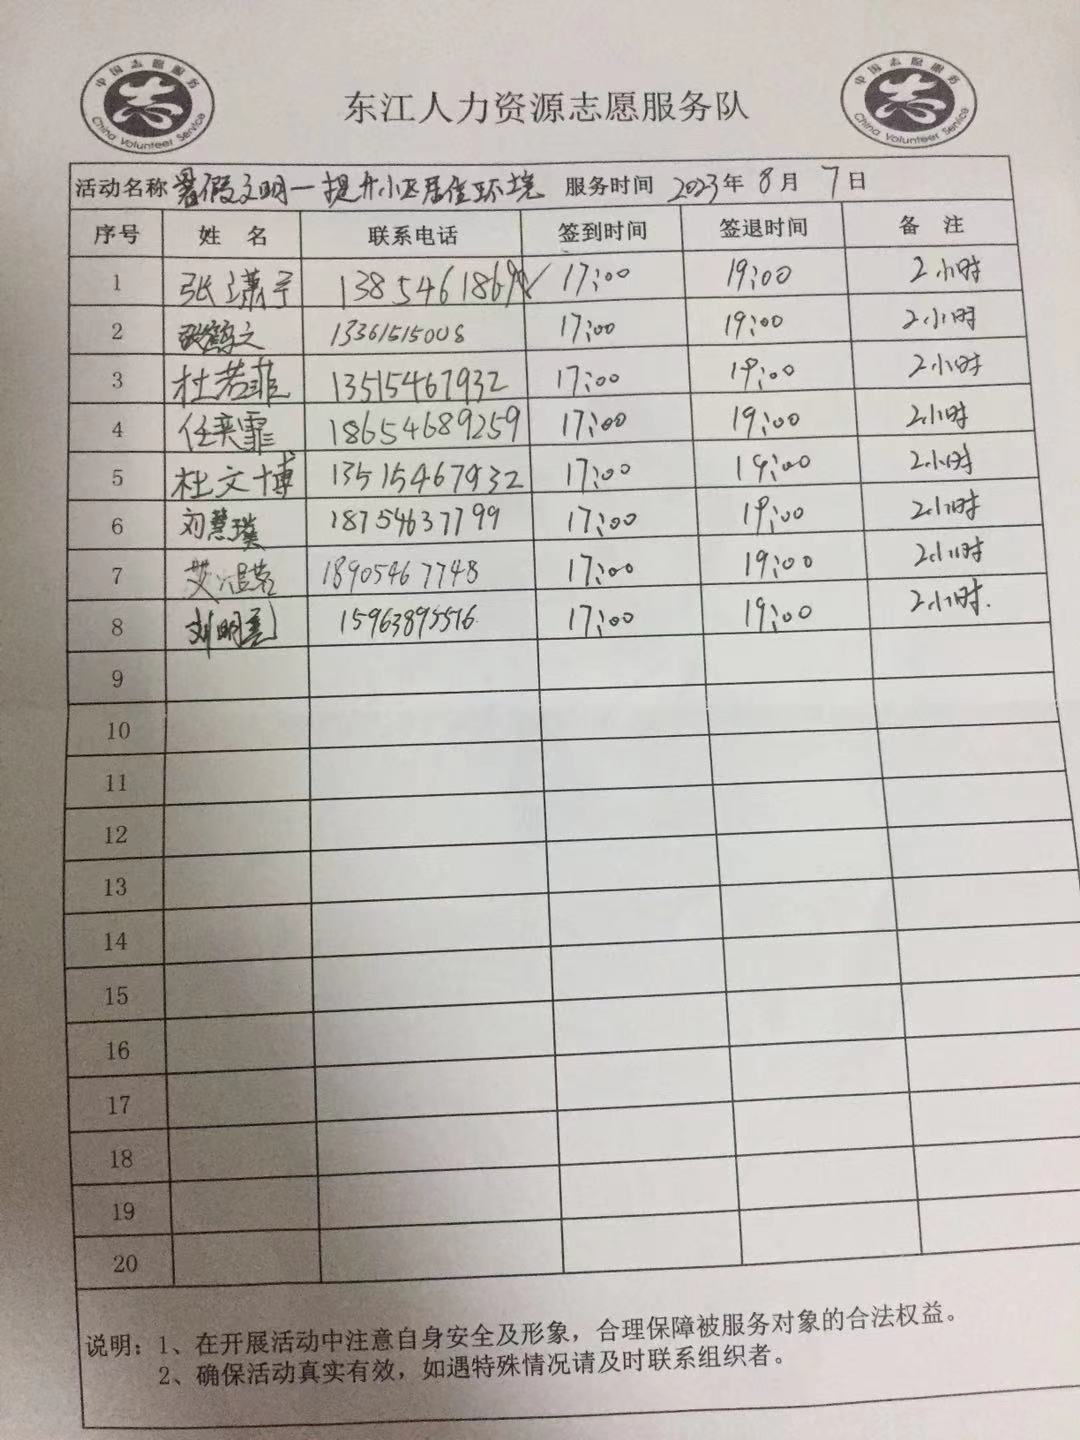 中国志愿服务
China Volunteer Service
东江人力资源志愿服务队
中国志愿服务
China Volunteer Service
活动名称 暑假文明一提升小区居住环境 服务时间 2023年 8月 7日
序号 姓名 联系电话 签到时间 签退时间 备注
1 张潇予 1385461869 17:00 19:00 2小时
2 张鹤文 13361515008 17:00 19:00 2小时
3 杜若菲 13515467932 17:00 19:00 2小时
4 任奕霏 18654689259 17:00 19:00 2小时
5 杜文博 13515467932 17:00 19:00 2小时
6 刘慧璞 18754637799 17:00 19:00 2小时
7 艾 18905467748 17:00 19:00 2小时
8 刘明亮 15963895516 17:00 19:00 2小时.
9
10
11
12
13
14
15
16
17
18
19
20
说明：1、在开展活动中注意自身安全及形象，合理保障被服务对象的合法权益。
2、确保活动真实有效，如遇特殊情况请及时联系组织者。